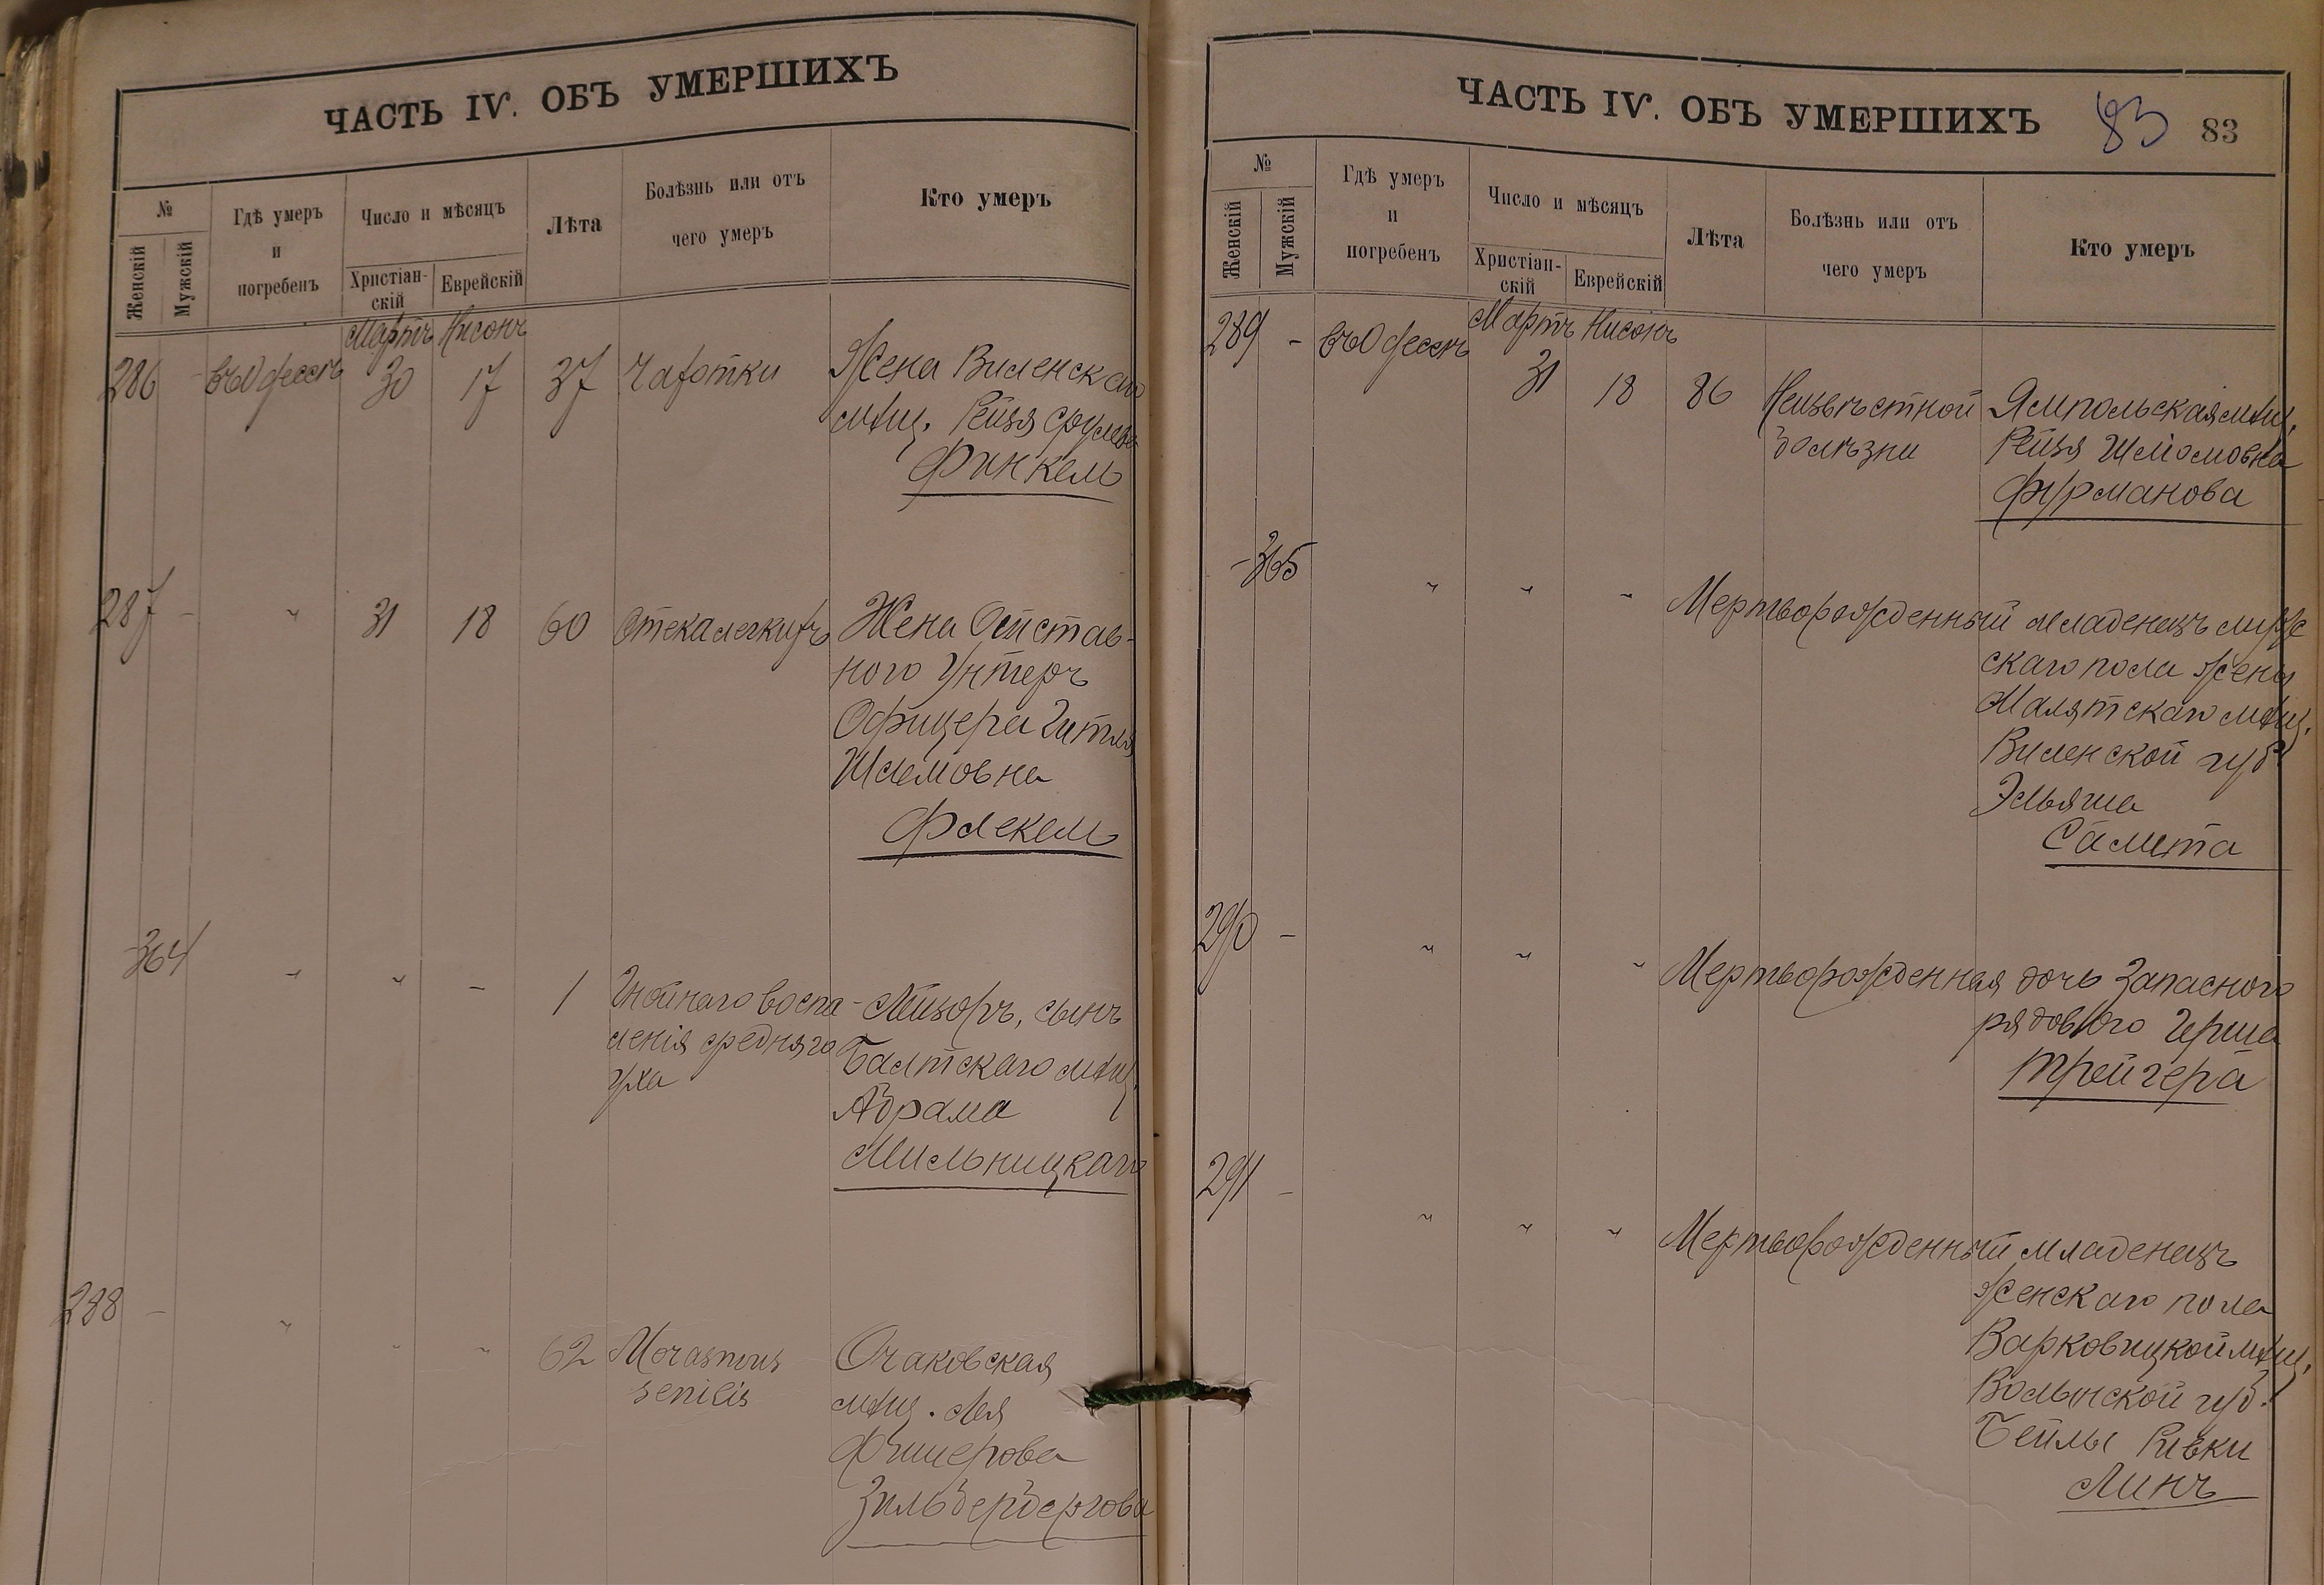 ЧАСТЬ IV. ОБЪ УМЕРШИХЪ
№
Женскій
Мужскій
Гдѣ умеръ
и
погребенъ
Число и мѣсяцъ
Христіан-
скій
Еврейскій
Лѣта
Болѣзнь или отъ
чего умеръ
Кто умеръ
Мартъ Нисонъ
286 - въ Одессѣ 30 17 37 Чахотки Жена Виленскаго
мѣщ. Рейзя Срулева
Финкель
287 - " 31 18 60 Отека легкихъ Жена Отстав-
ного Унтеръ
Офицера Гитля
Шлемовна
Фаекель
-364 " " - 1 Гнойнаго воспа- Лейзоръ, сынъ
ленія средняго Балтскаго мѣщ.
уха Абрама
Мильницкаго
288 - " " " 62 Morasmus Очаковская
senilis мѣщ. Лея
Фишерова
Зильбербергова
ЧАСТЬ IV. ОБЪ УМЕРШИХЪ 83 83
№
Женскій
Мужскій
Гдѣ умеръ
и
погребенъ
Число и мѣсяцъ
Христіан-
скій
Еврейскій
Лѣта
Болѣзнь или отъ
чего умеръ
Кто умеръ
Мартъ Нисонъ
289 - въ Одессѣ 31 18 86 Неизвѣстной Ямпольская мѣщ.
болѣзни Рейзя Шліомовна
Фурманова
-365 " " " Мертворожденный младенецъ муже
скаго пола жены
Малятскаго мѣщ.
Виленской губ.
Эльяша
Салита
290 - " " " Мертворожденная дочь Запасного
рядового Герша
Трейгера
291 - " " " Мертворожденный младенецъ
женскаго пола
Варковицкой мѣщ.
Волынской губ.
Бейлы Ривки
Линъ